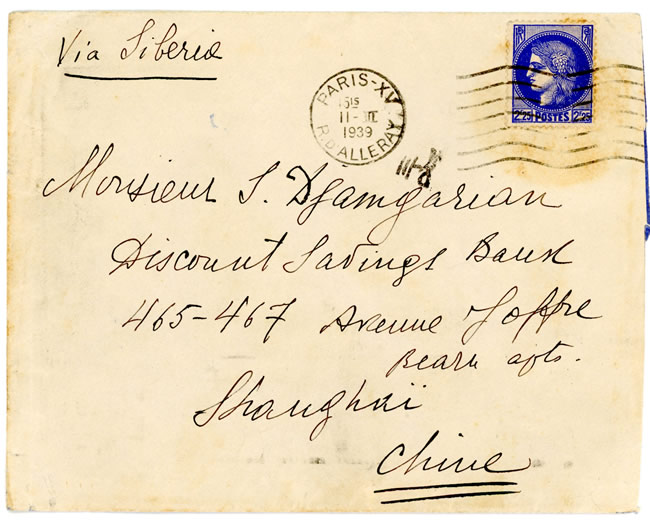 Via Siberia
PARIS-XV
15IS
11-III
1939
R.D'ALLERAY
2F25 POSTES 2F25
Monsieur S. Djamgarian
Discount Savings Bank
465-467 Avenue Joffre
Bearn apts.
Shanghaï
Chine